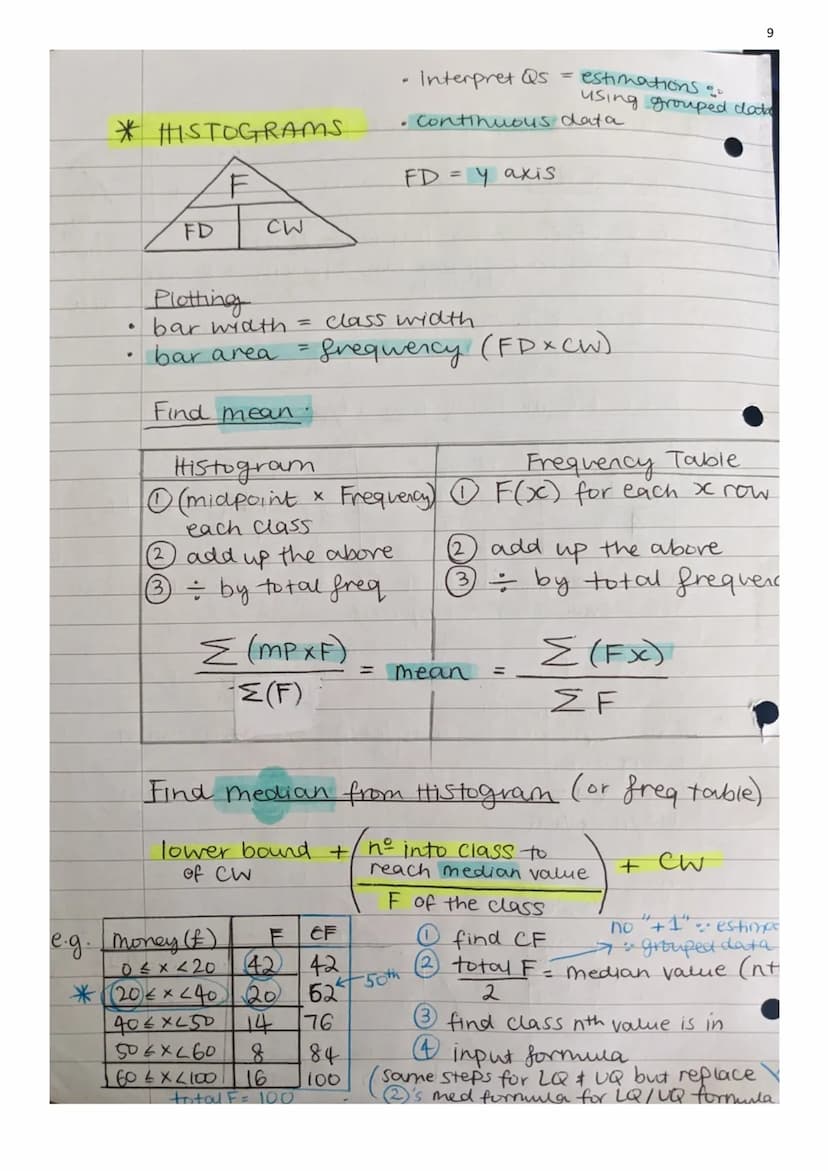 9
· Interpret Qs = estimations ∵
using grouped data
* HISTOGRAMS
· continuous data
F
FD CW
FD = y axis
Plotting
· bar width = class width
· bar area = frequency (FD × CW)
Find mean ·
Histogram
① (midpoint × Frequency)
each class
② add up the above
③ ÷ by total freq
Frequency Table
① F(x) for each x row
② add up the above
③ ÷ by total frequenc
Σ (MP×F)
Σ(F)
= mean =
Σ (Fx)
Σ F
Find median from Histogram (or freq table)
lower bound + (nº into class to + CW
of CW reach median value
F of the class)
e.g. Money (£) F CF
0 ≤ x < 20 42 42
* 20 ≤ x < 40 20 62 ← 50th
40 ≤ x < 50 14 76
50 ≤ x < 60 8 84
60 ≤ x < 100 16 100
total F = 100
① find CF
no "+1" ∵ estima
→ ∵ grouped data
② total F = median value (nt
2
③ find class nth value is in
④ input formula
(same steps for LQ & UQ but replace
②'s med formula for LQ/UQ formula